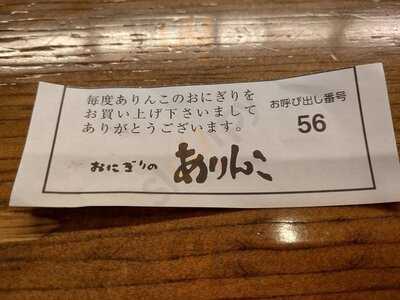 毎度ありんこのおにぎりを
お買い上げ下さいまして
ありがとうございます。
お呼び出し番号
56
おにぎりの ありんこ